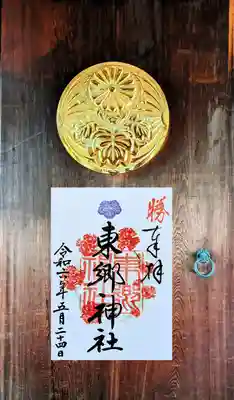 勝
奉拝
東郷神社
令和六年五月二十四日